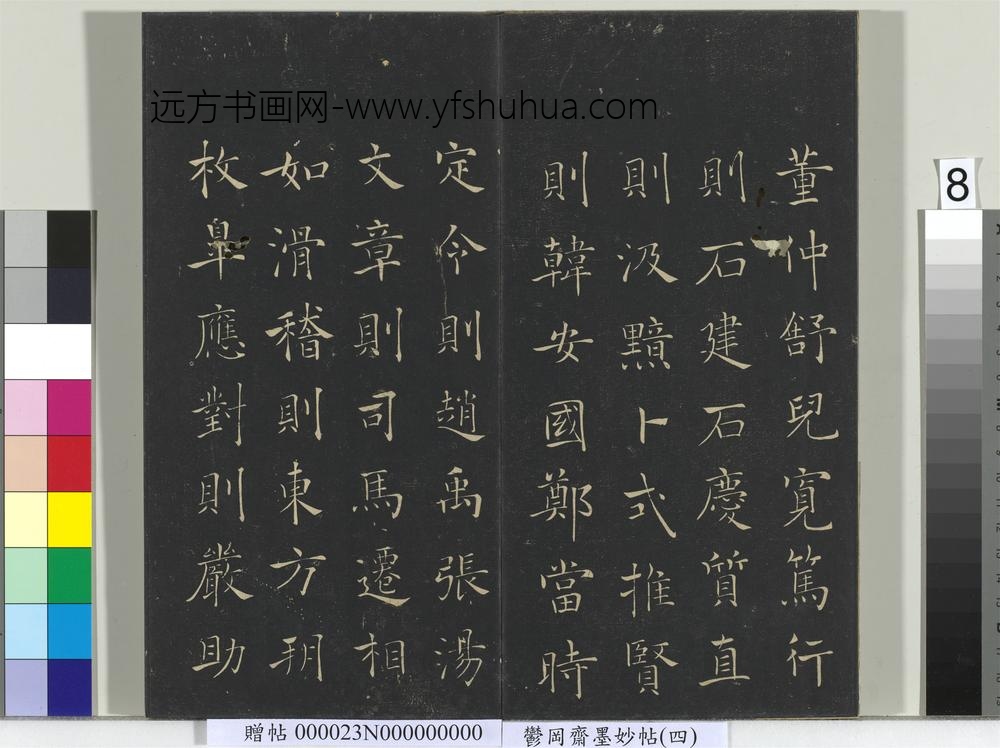 远方书画网-www.yfshuhua.com
董仲舒兒寬篤行
則石建石慶質直
則汲黯卜式推賢
則韓安國鄭當時
定令則趙禹張湯
文章則司馬遷相
如滑稽則東方朔
枚臯應對則嚴助
8
贈帖 000023N000000000
鬱岡齋墨妙帖(四)